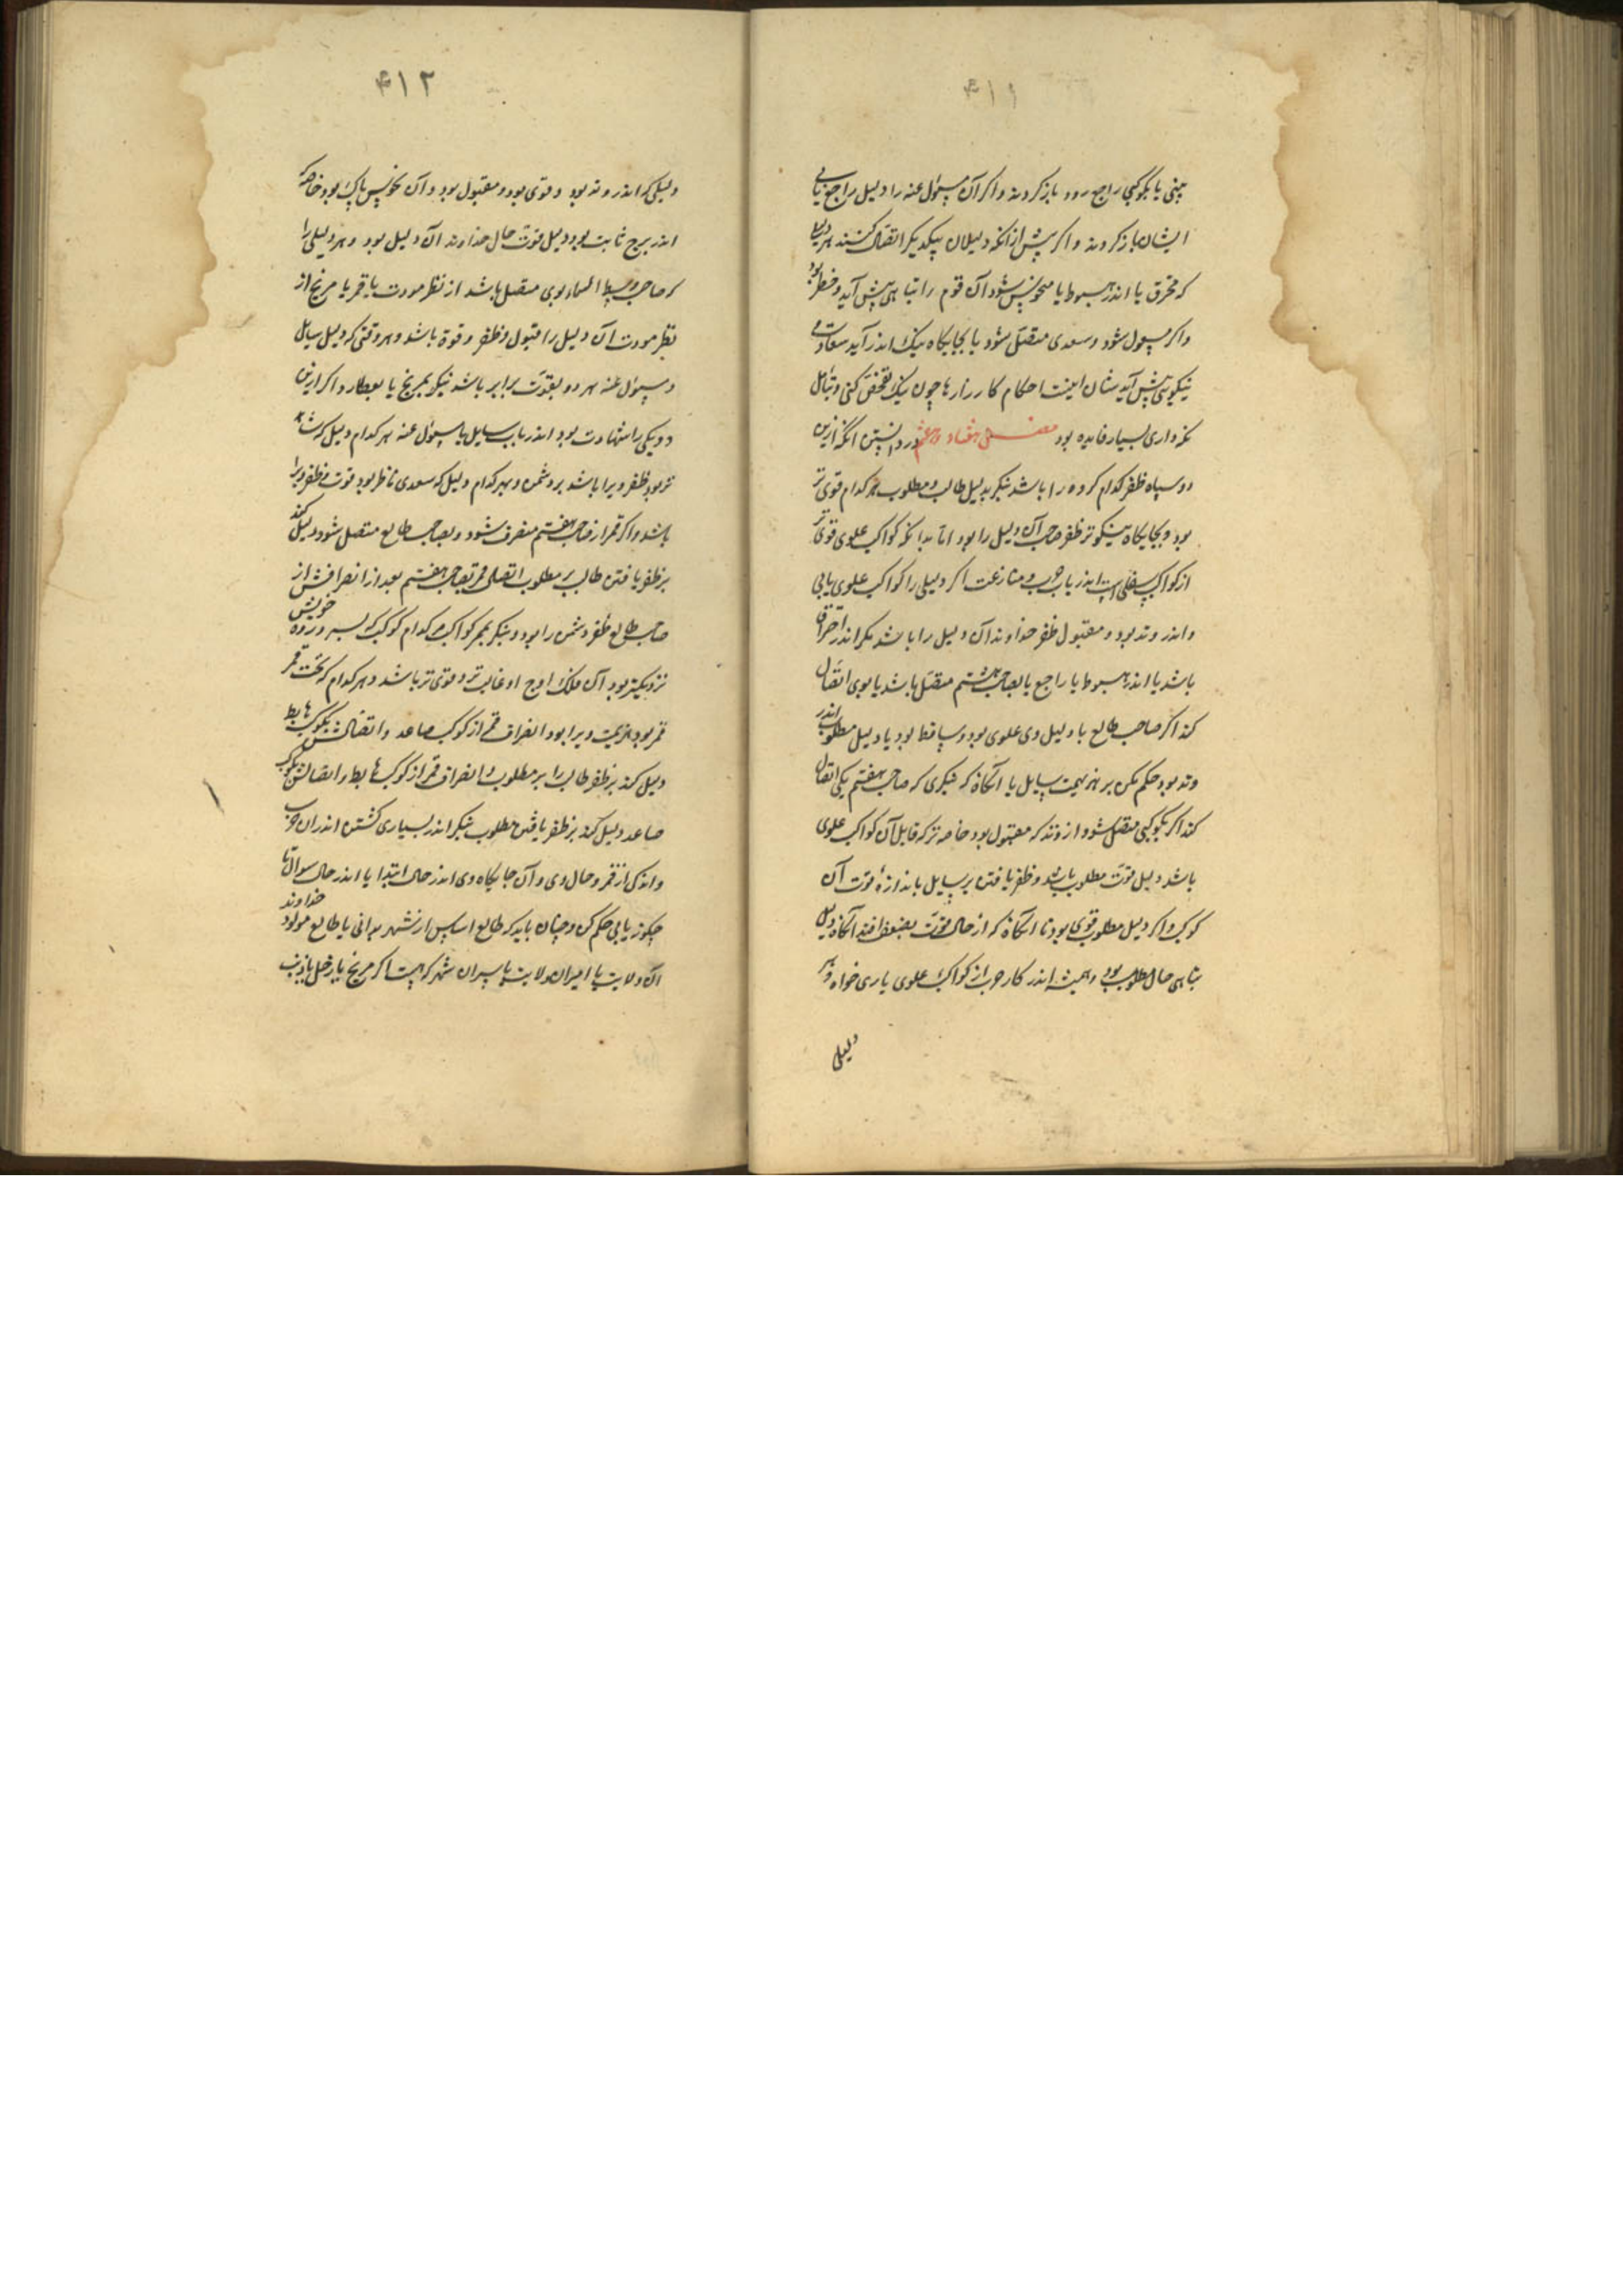 ۴۱۱
بینی یا بکوکبی راجع رود باز کردند و اکر آن مسؤل عنه را دلیل راجع یابی
ایشان باز کردند و اکر پیش از انکه دلیلان بیکدیکر اتصال کنند هر دلیلی
که محترق یا اندر هبوط یا منحوس شود آن قوم را تباهی پیش آید و خطر بود
واکر مسعود شود وسعدی متصل شود یا بجایکاه نیک اندر آید سعادت و
نیکویی پیش آید شان اینست احکام کارزارها چون نیک تفحص کنی وتأمل
نکه داری بسیار فایده بود فصل هفتاد و هشتم در دانستن انکه ازین
دو سپاه ظفر کدام کروه را باشد بنکر بدلیل طالب و مطلوب هر کدام قوی تر
بود وبجایکاه نیکوتر ظفر صاحب آن دلیل را بود اما بدانکه کواکب علوی قوی تر
از کواکب سفلی است اندر باب حرب و منازعت اکر دلیلی را کواکب علوی یابی
واندر وتد بود و مقبول ظفر خداوند آن دلیل را باشد مکر اندر احتراق
باشد یا اندر هبوط یا راجع یا بصاحب هشتم متصل باشد یا بوی اتصال
کند اکر صاحب طالع یا دلیل وی علوی بود وساقط بود یا دلیل مطلوب اندر
وتد بود حکم مکن بر هزیمت سایل یا انکاه که بنکری که صاحب هفتم بکی اتصال
کند اکر بکوکبی متصل شود از وتد که مقبول بود خاصه ترکه قابل آن کواکب علوی
باشد دلیل قوت مطلوب باشد وظفر یافتن بر سایل باندازهٔ قوت آن
کوکب واکر دلیل مطلوب قوی بود تا انکاه که از حال قوت بضعف افتد انکاه دلیل
تباهی حال مطلوب بود وهمیشه اندر کار حرب از کواکب علوی یاری خواه و هر
دلیلی
۴۱۲
دلیلی که اندر وتد بود وقوی بود و مقبول بود وآن نحوس پاک بود خاصه
اندر برج ثابت بود دلیل قوت حال خداوند آن دلیل بود وهر دلیلی را
که صاحب وسط السماء بوی متصل باشد از نظر مودت یا قمر یا مریخ از
نظر مودت آن دلیل را قبول وظفر وقوة باشد وهر وقتی که دلیل سایل
ومسؤل عنه هر دو بقوت برابر باشد بنکر بمریخ یا بعطارد اکر ازین
دو یکی را شهادت بود اندر باب سایل یا مسؤل عنه هر کدام دلیل که
تر بود ظفر ویرا باشد بر دشمن وبهر کدام دلیل که سعدی ناظر بود قوت و ظفر ویرا
باشد واکر قمر از صاحب هفتم منصرف شود وبصاحب طالع متصل شود دلیل کند
بر ظفر یافتن طالب بر مطلوب اتصال قمر بصاحب هفتم بعد از انصرافش از
صاحب طالع ظفر دشمن را بود وبنکر بهر کواکب هر کدام کوکب که بسیر وروه خویش
نزدیکتر بود آن فلک اوج او غالب تر وقوی تر باشد وهر کدام که تحت قمر
قمر بود هزیمت ویرا بود انصراف قمر از کوکب صاعد واتصالش بکوکب هابط
دلیل کند بر ظفر طالب را بر مطلوب وانصراف قمر از کوکب هابط واتصالش بکوکب
صاعد دلیل کند بر ظفر یافتن مطلوب بنکر اندر بسیاری کشتن اندر آن حرب
واندکی از قمر وحال وی وآن جایکاه وی اندر حال ابتدا یا اندر حال سوال تا
چکونه یابی حکم کن وچنان باید که طالع اساس آن شهر بدانی یا طالع مولود خداوند
آن ولایت یا امیران ولایت یا پسران شهر که هست اکر مریخ یا زحل یا ذنب